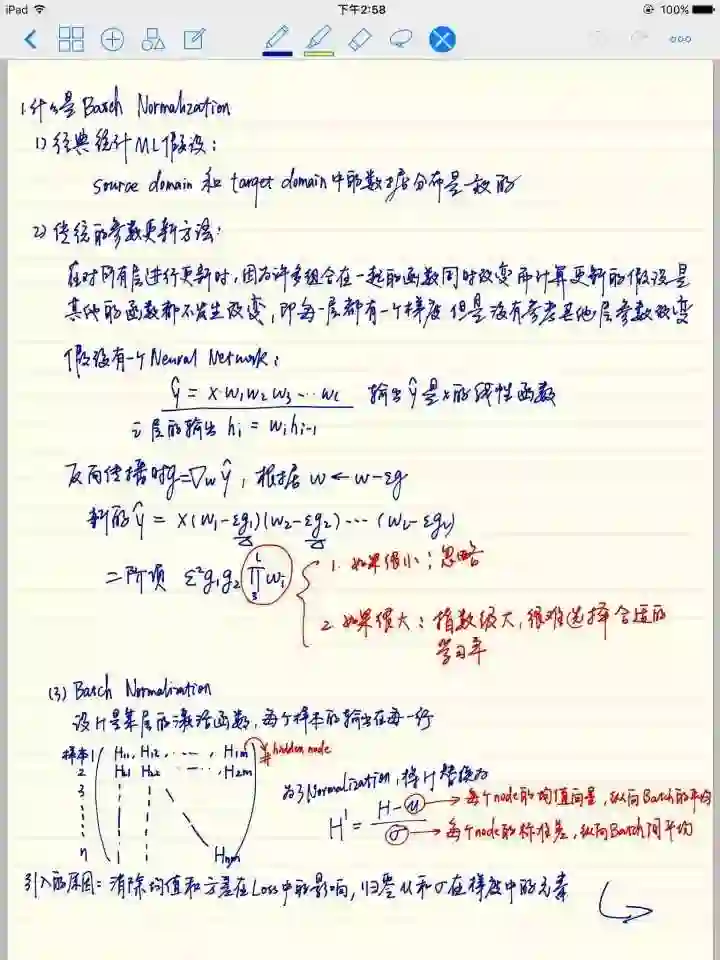 iPad 下午2:58 100%
1.什么是 Batch Normalization
1) 经典统计ML假设：
source domain 和 target domain 中的数据分布是一致的
2) 传统的参数更新方法：
在对所有层进行更新时，因为许多组合在一起的函数同时改变而计算更新的假设是
其他的函数都不发生改变，即每一层都有一个梯度 但是没有参考其他层参数改变
假设有一个Neural Network：
ŷ = x w₁w₂w₃…w_l 输出ŷ是x的线性函数
i层的输出 hᵢ = wᵢhᵢ₋₁
反向传播时g=∇wŷ，根据 w ← w-εg
新的ŷ = x(w₁-εg₁)(w₂-εg₂)…(w_l-εg_l)
二阶项 ε²g₁g₂ ∏₃ˡ wᵢ
1. 如果很小；忽略
2. 如果很大：指数级大，很难选择合适的
学习率
(3) Batch Normalization
设H是某层的激活函数，每个样本的输出在每一行
样本1 H₁₁, H₁₂, …, H₁m # hidden node
2 H₂₁ H₂₂ …, H₂m
3
n Hnm
为了Normalization，将H替换为
H' = (H-μ)/σ
μ → 每个node的均值向量，纵向Batch的平均
σ → 每个node的标准差，纵向Batch间平均
引入的原因：消除均值和方差在Loss中的影响，归零μ和σ在梯度中的元素